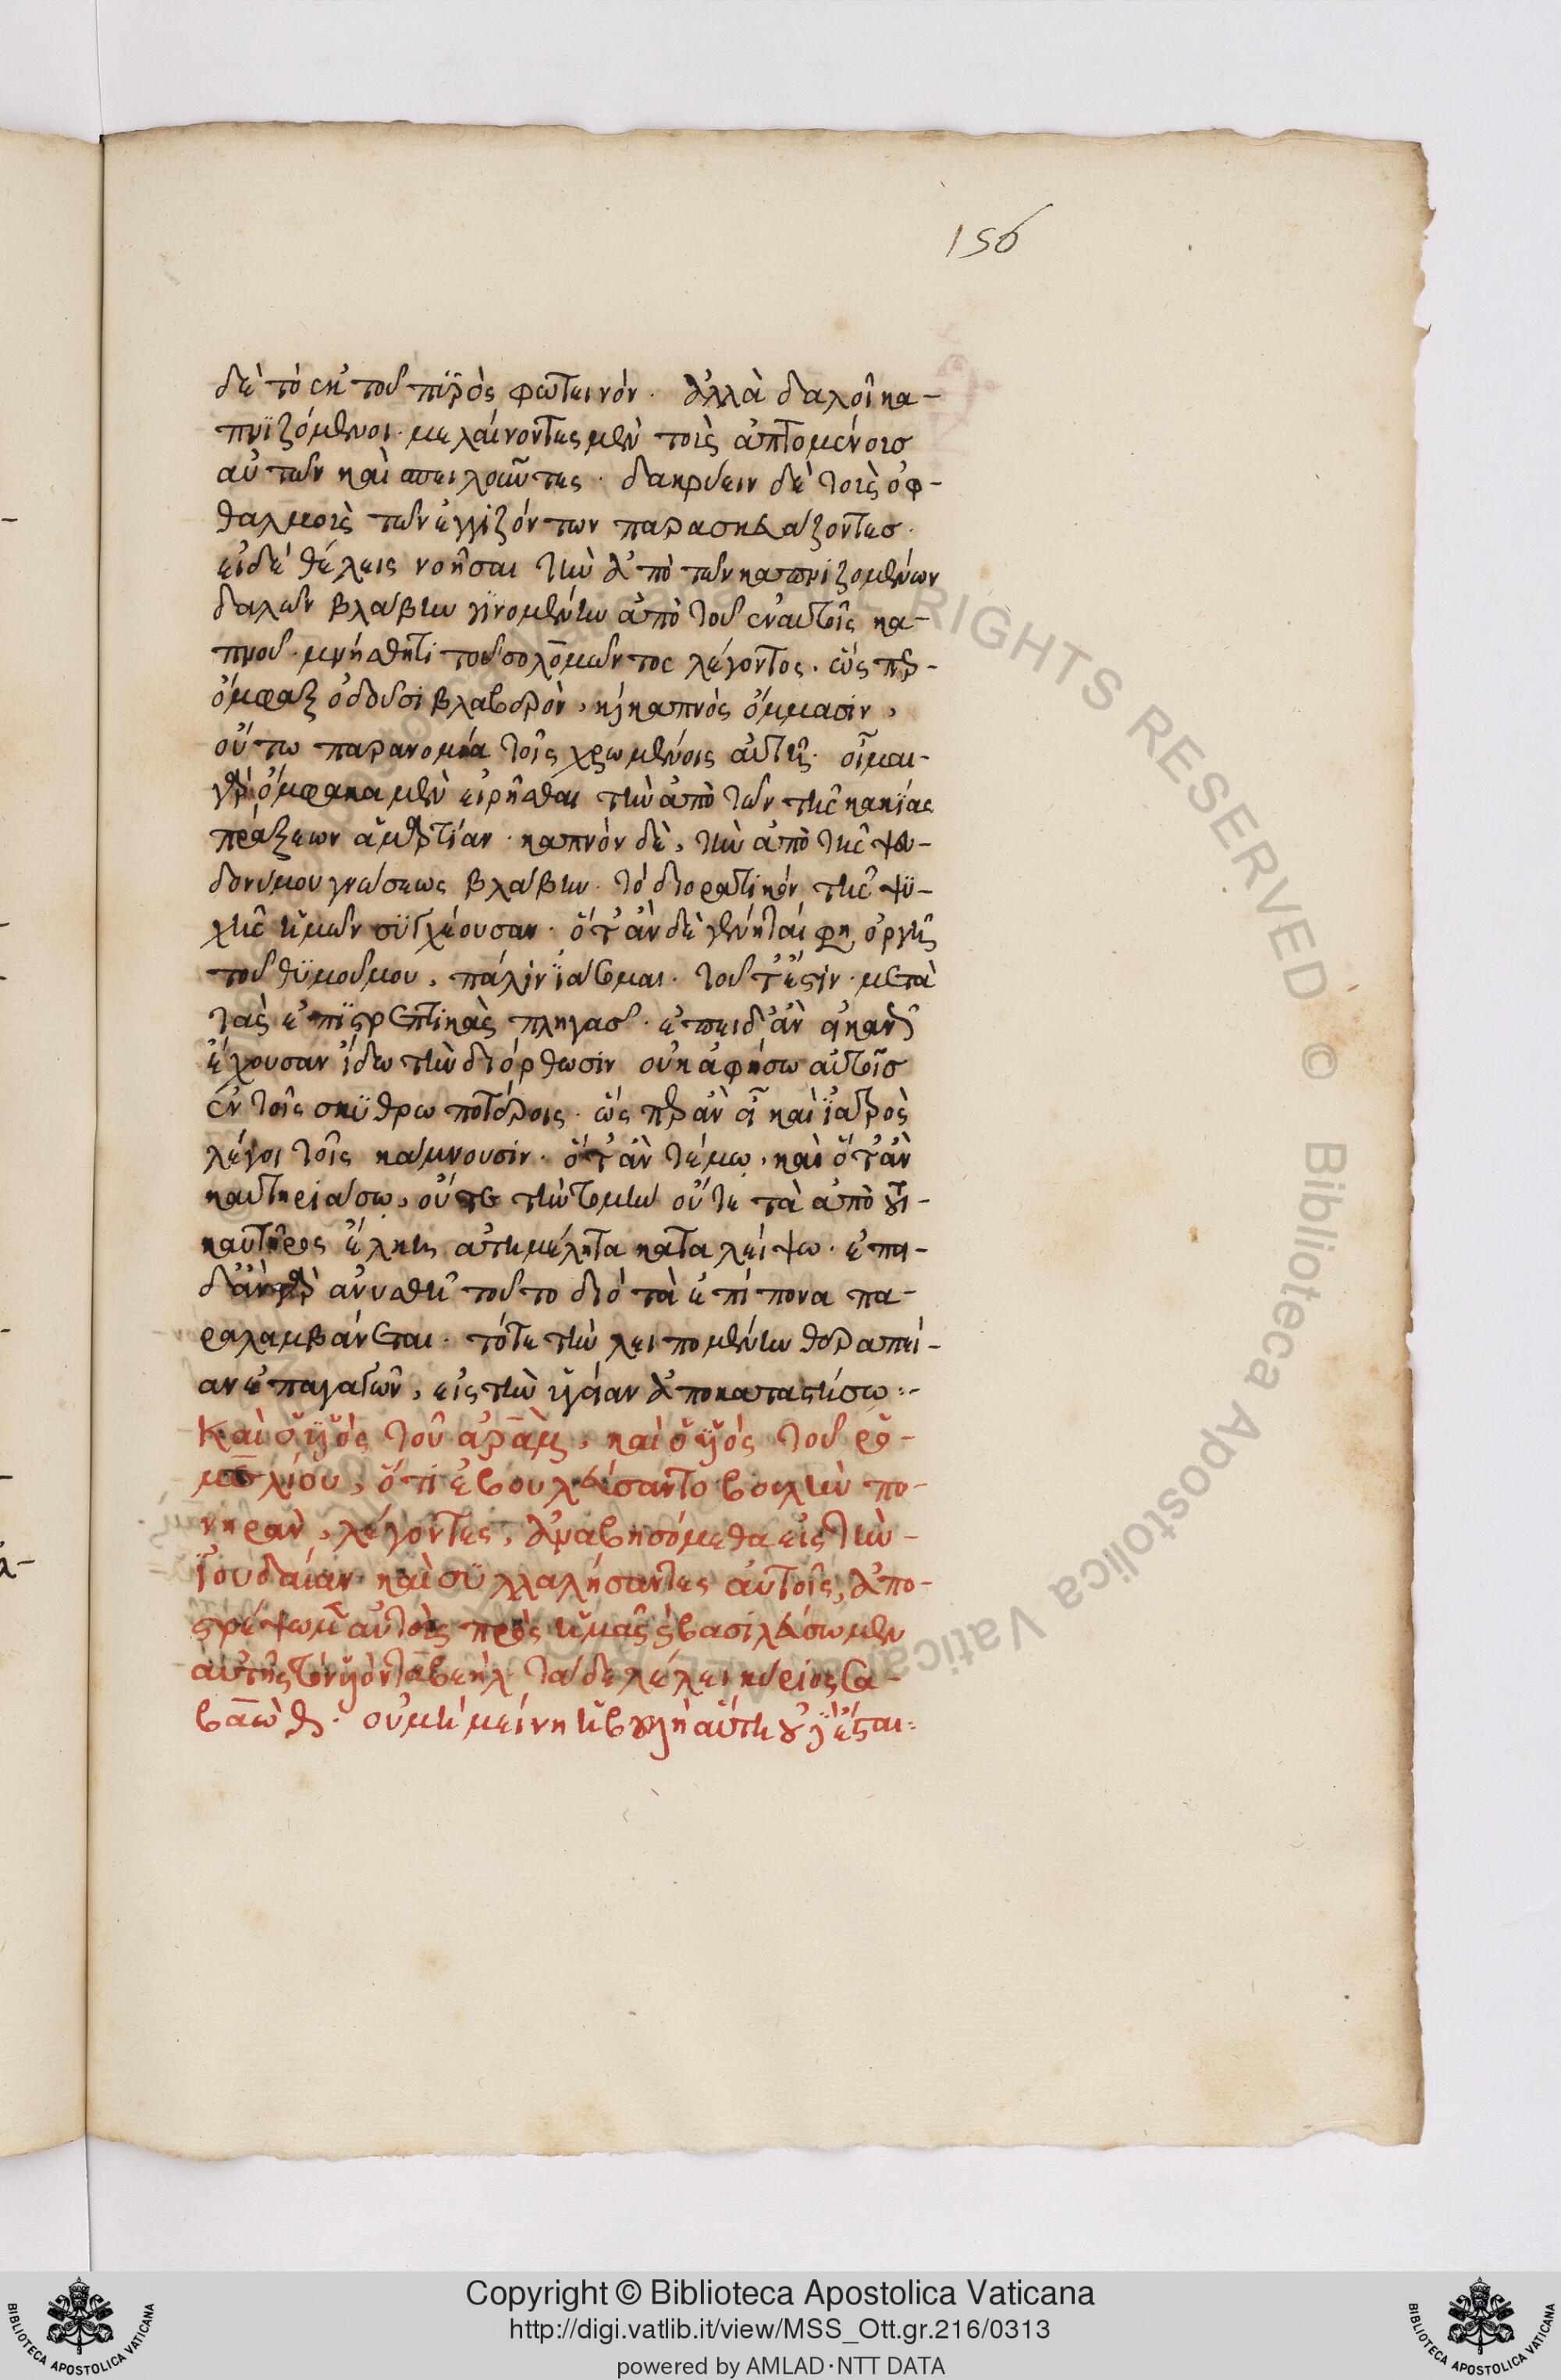 156
δὲ τὸ ἐκ τοῦ πυρὸς φωτεινόν. ἀλλὰ δαλοὶ κα-
πνιζόμενοι. μελαίνοντες μὲν τοὺς ἁπτομένους
αὐτῶν καὶ δακρύειν δὲ τοὺς ὀφ-
θαλμοὺς τῶν ἐγγιζόντων παρασκευάζοντες.
εἰ δὲ θέλεις νοῆσαι τὴν ἀπὸ τῶν καπνιζομένων
δαλῶν βλάβην γινομένην ἀπὸ τοῦ ἐν αὐτοῖς κα-
πνοῦ. μνήσθητι τοῦ σολομῶντος λέγοντος. ὥσπερ
ὄμφαξ ὀδοῦσι βλαβερὸν, καὶ καπνὸς ὄμμασιν,
οὕτω παρανομία τοῖς χρωμένοις αὐτῇ. οἶμαι
γὰρ ὄμφακα μὲν εἰρῆσθαι τὴν ἀπὸ τῶν τῆς κακίας
πράξεων ἁμαρτίαν. καπνὸν δὲ, τὴν ἀπὸ τῆς ψευ-
δωνύμου γνώσεως βλάβην. τὸ διορατικόν τῆς ψυ-
χῆς ἡμῶν συγχέουσαν. ὅταν δὲ γένηταί φη, ὀργὴ
τοῦ θυμοῦ μου, πάλιν ἰάσομαι. τουτέστιν. μετὰ
τὰς ἐπιστρεπτικὰς πληγάς. ἐπειδὰν ἱκανὴν
ἔχουσαν ἴδω τὴν διόρθωσιν οὐκ ἀφήσω αὐτοὺς
ἐν τοῖς σκυθρωποτέροις. ὥσπερ ἂν εἰ καὶ ἰατρὸς
λέγοι τοῖς κάμνουσιν. ὅταν τέμω, καὶ ὅταν
καυτηριάσω, οὔτε τὴν τομὴν οὔτε τὰ ἀπὸ τοῦ
καυτῆρος ἕλκη ἀτημέλητα καταλείψω. ἐπει-
δὰν γὰρ ἀνυσθῇ τοῦτο διὸ τὰ ἐπίπονα πα-
ραλαμβάνεται. τότε τὴν λειπομένην θεραπεί-
αν ἐπαγαγὼν, εἰς τὴν ὑγείαν ἀποκαταστήσω:-
Καὶ ὁ υἱὸς τοῦ ἀρὰμ, καὶ ὁ υἱός τοῦ ρο-
μελίου, ὅτι ἐβουλεύσαντο βουλὴν πο-
νηρὰν, λέγοντες, ἀναβησόμεθα εἰς τὴν
Ἰουδαίαν. καὶ συλλαλήσαντες αὐτοῖς, ἀπο-
στρέψωμεν αὐτοὺς πρὸς ἡμᾶς καὶ βασιλεύσωμεν
αὐτῆς τὸν υἱὸν ταβεὴλ. τάδε λέγει κύριος σα-
βαὼθ. οὐ μὴ μείνῃ ἡ βουλὴ αὕτη οὐδὲ ἔσται:
Copyright © Biblioteca Apostolica Vaticana
http://digi.vatlib.it/view/MSS_Ott.gr.216/0313
powered by AMLAD·NTT DATA